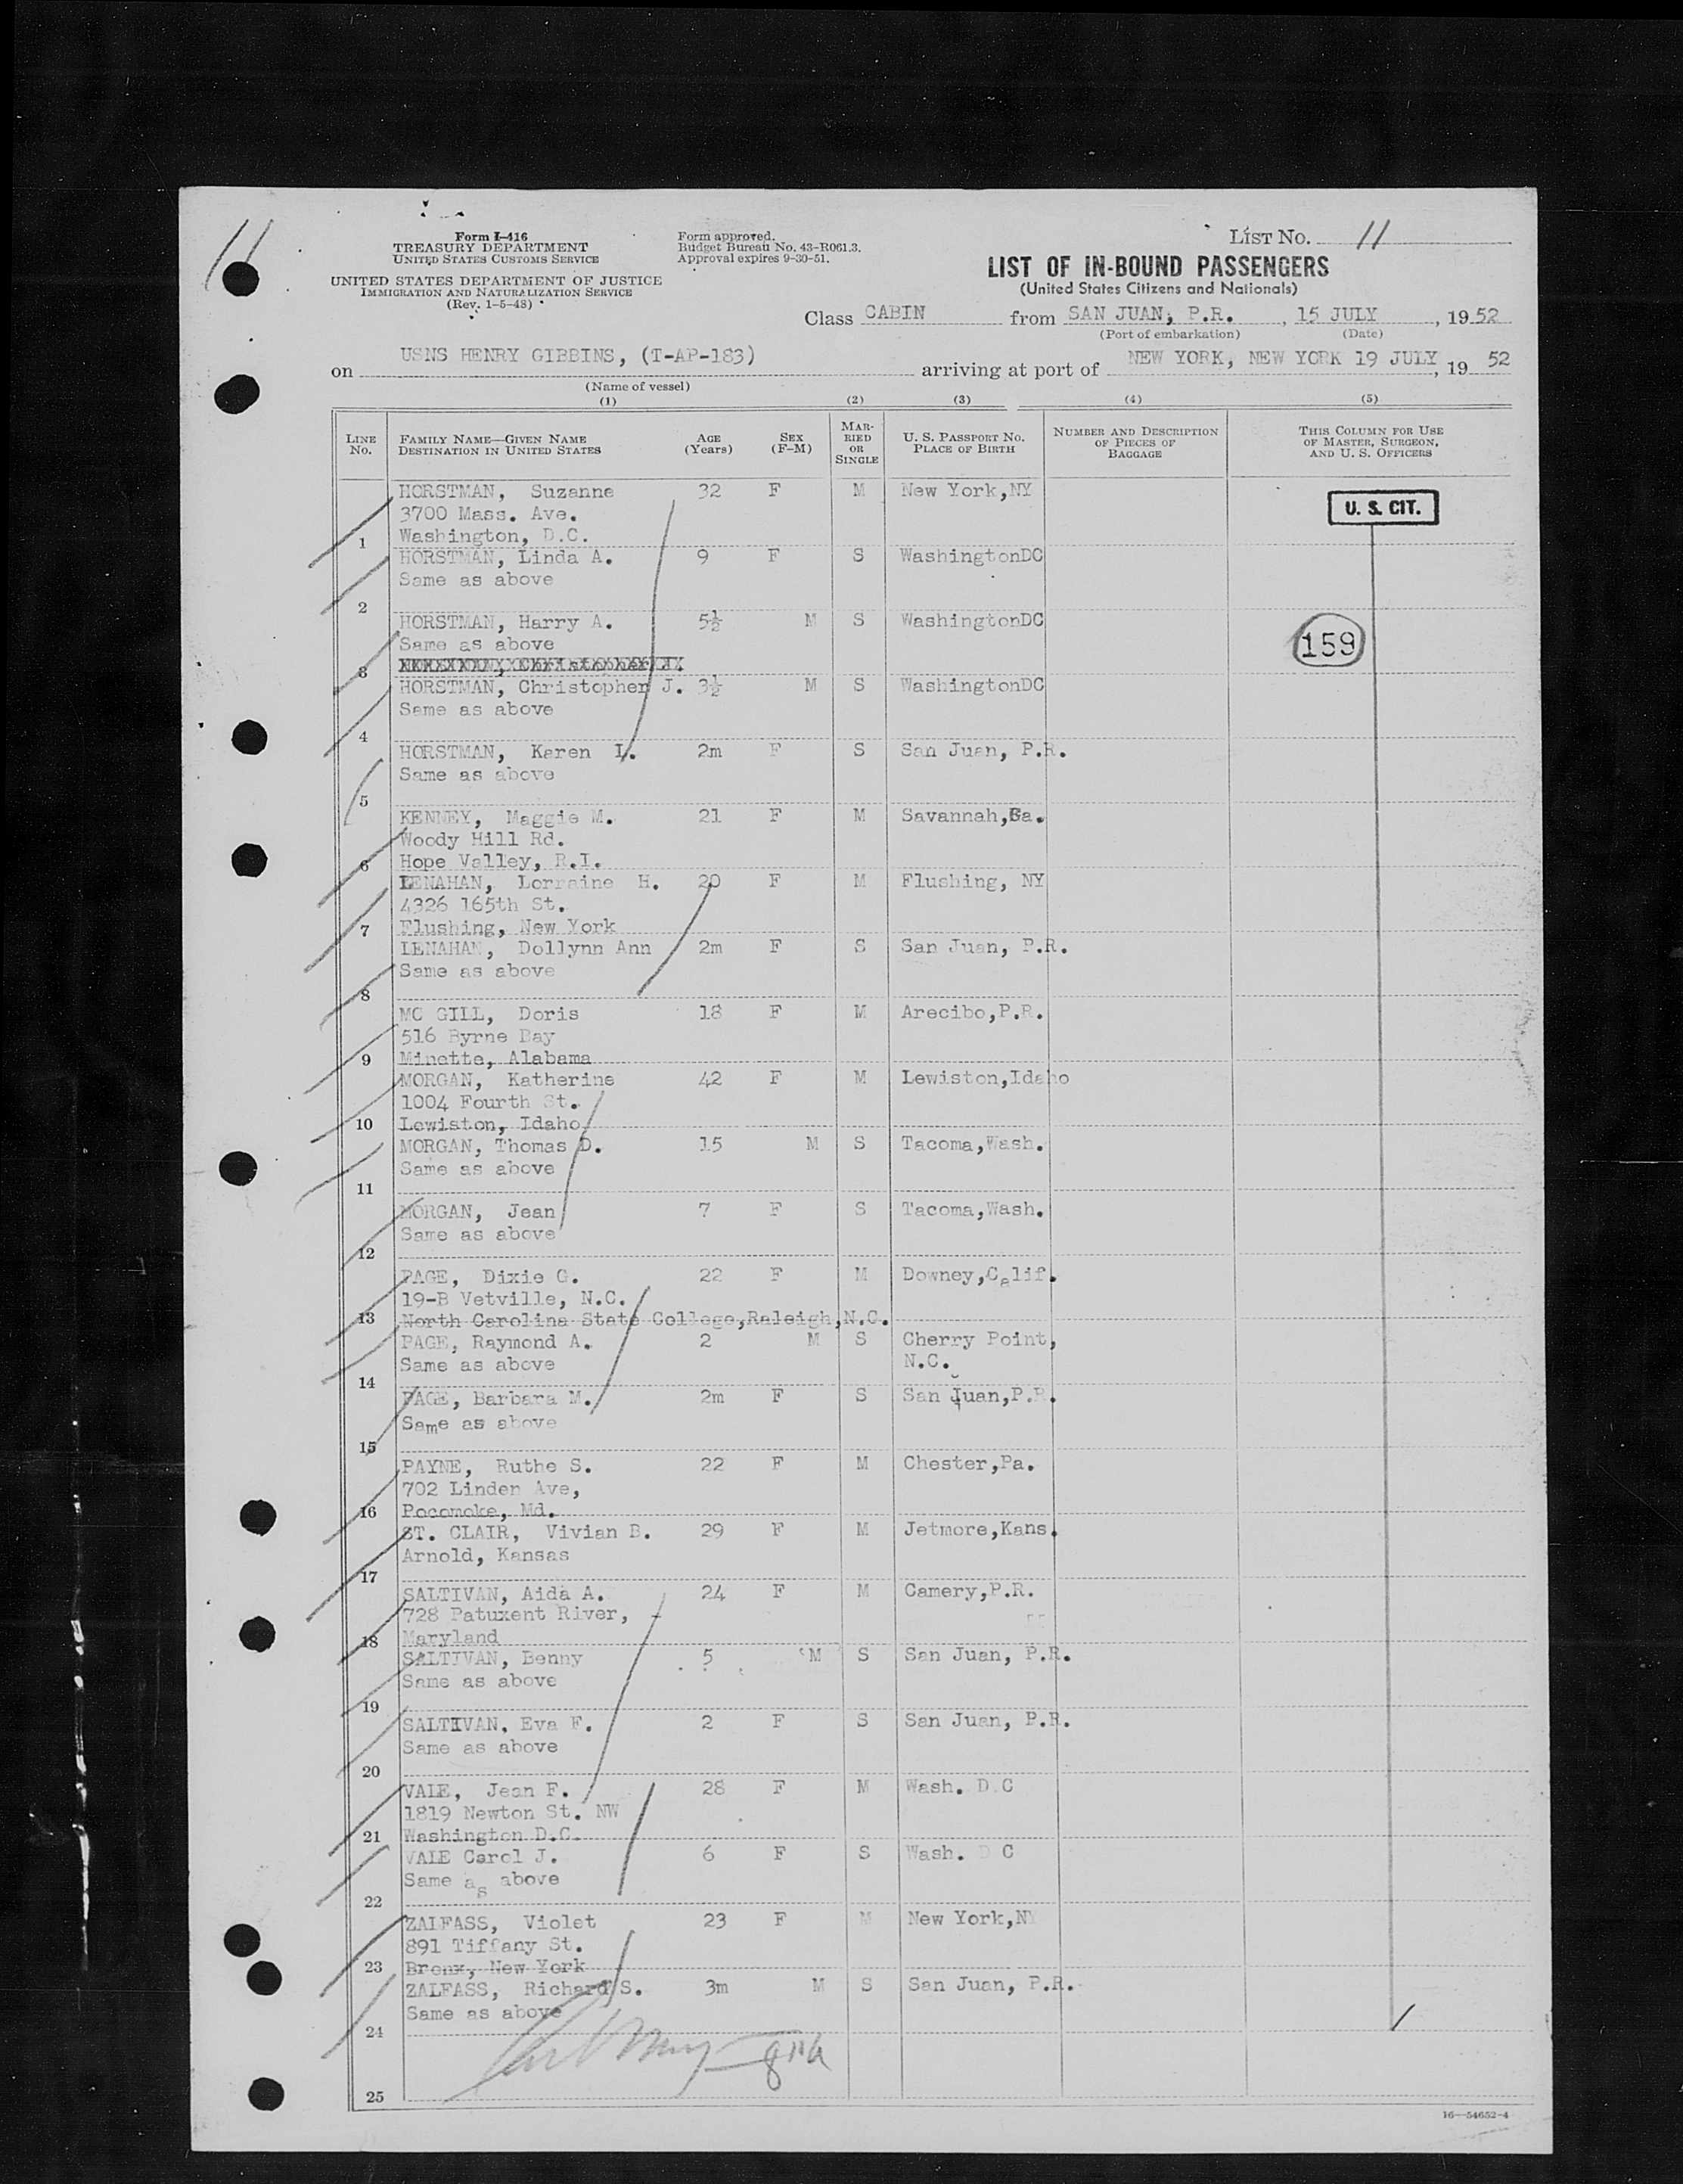 11
Form I-416
TREASURY DEPARTMENT
UNITED STATES CUSTOMS SERVICE
UNITED STATES DEPARTMENT OF JUSTICE
IMMIGRATION AND NATURALIZATION SERVICE
(Rev. 1-5-48)
Form approved.
Budget Bureau No. 43-R061.3.
Approval expires 9-30-51.
LIST NO. 11
LIST OF IN-BOUND PASSENGERS
(United States Citizens and Nationals)
Class CABIN from SAN JUAN, P.R. , 15 JULY , 1952
(Port of embarkation) (Date)
on USNS HENRY GIBBINS, (T-AP-183) arriving at port of NEW YORK, NEW YORK 19 JULY , 19 52
(Name of vessel)
(1) (2) (3) (4) (5)
LINE No. FAMILY NAME—GIVEN NAME DESTINATION IN UNITED STATES AGE (Years) SEX (F-M) MARRIED OR SINGLE U. S. PASSPORT NO. PLACE OF BIRTH NUMBER AND DESCRIPTION OF PIECES OF BAGGAGE THIS COLUMN FOR USE OF MASTER, SURGEON, AND U. S. OFFICERS
HORSTMAN, Suzanne 32 F M New York,NY
U. S. CIT.
3700 Mass. Ave.
1 Washington, D.C.
HORSTMAN, Linda A. 9 F S WashingtonDC
Same as above
2
HORSTMAN, Harry A. 5½ M S WashingtonDC
Same as above
159
3
HORSTMAN, Christopher J. 3½ M S WashingtonDC
Same as above
4
HORSTMAN, Karen L. 2m F S San Juan, P.R.
Same as above
5
KENNEY, Maggie M. 21 F M Savannah,Ga.
Woody Hill Rd.
6 Hope Valley, R.I.
LENAHAN, Lorraine H. 20 F M Flushing, NY
4326 165th St.
7 Flushing, New York
LENAHAN, Dollynn Ann 2m F S San Juan, P.R.
Same as above
8
MC GILL, Doris 18 F M Arecibo,P.R.
516 Byrne Bay
9 Minette, Alabama
MORGAN, Katherine 42 F M Lewiston,Idaho
1004 Fourth St.
10 Lewiston, Idaho
MORGAN, Thomas D. 15 M S Tacoma,Wash.
Same as above
11
MORGAN, Jean 7 F S Tacoma,Wash.
Same as above
12
PAGE, Dixie G. 22 F M Downey,Calif.
19-B Vetville, N.C.
13 North Carolina State College,Raleigh,N.C.
PAGE, Raymond A. 2 M S Cherry Point,
Same as above N.C.
14
PAGE, Barbara M. 2m F S San Juan,P.R.
Same as above
15
PAYNE, Ruthe S. 22 F M Chester,Pa.
702 Linden Ave,
16 Pocomoke, Md.
ST. CLAIR, Vivian B. 29 F M Jetmore,Kans.
Arnold, Kansas
17
SALTIVAN, Aida A. 24 F M Camery,P.R.
728 Patuxent River, -
18 Maryland
SALTIVAN, Benny 5 M S San Juan, P.R.
Same as above
19
SALTIVAN, Eva F. 2 F S San Juan, P.R.
Same as above
20
VALE, Jean F. 28 F M Wash. D.C
1819 Newton St. NW
21 Washington D.C.
VALE Carol J. 6 F S Wash. D C
Same as above
22
ZALFASS, Violet 23 F M New York,NY
891 Tiffany St.
23 Bronx, New York
ZALFASS, Richard S. 3m M S San Juan, P.R.
Same as above
24
25
16—54652-4